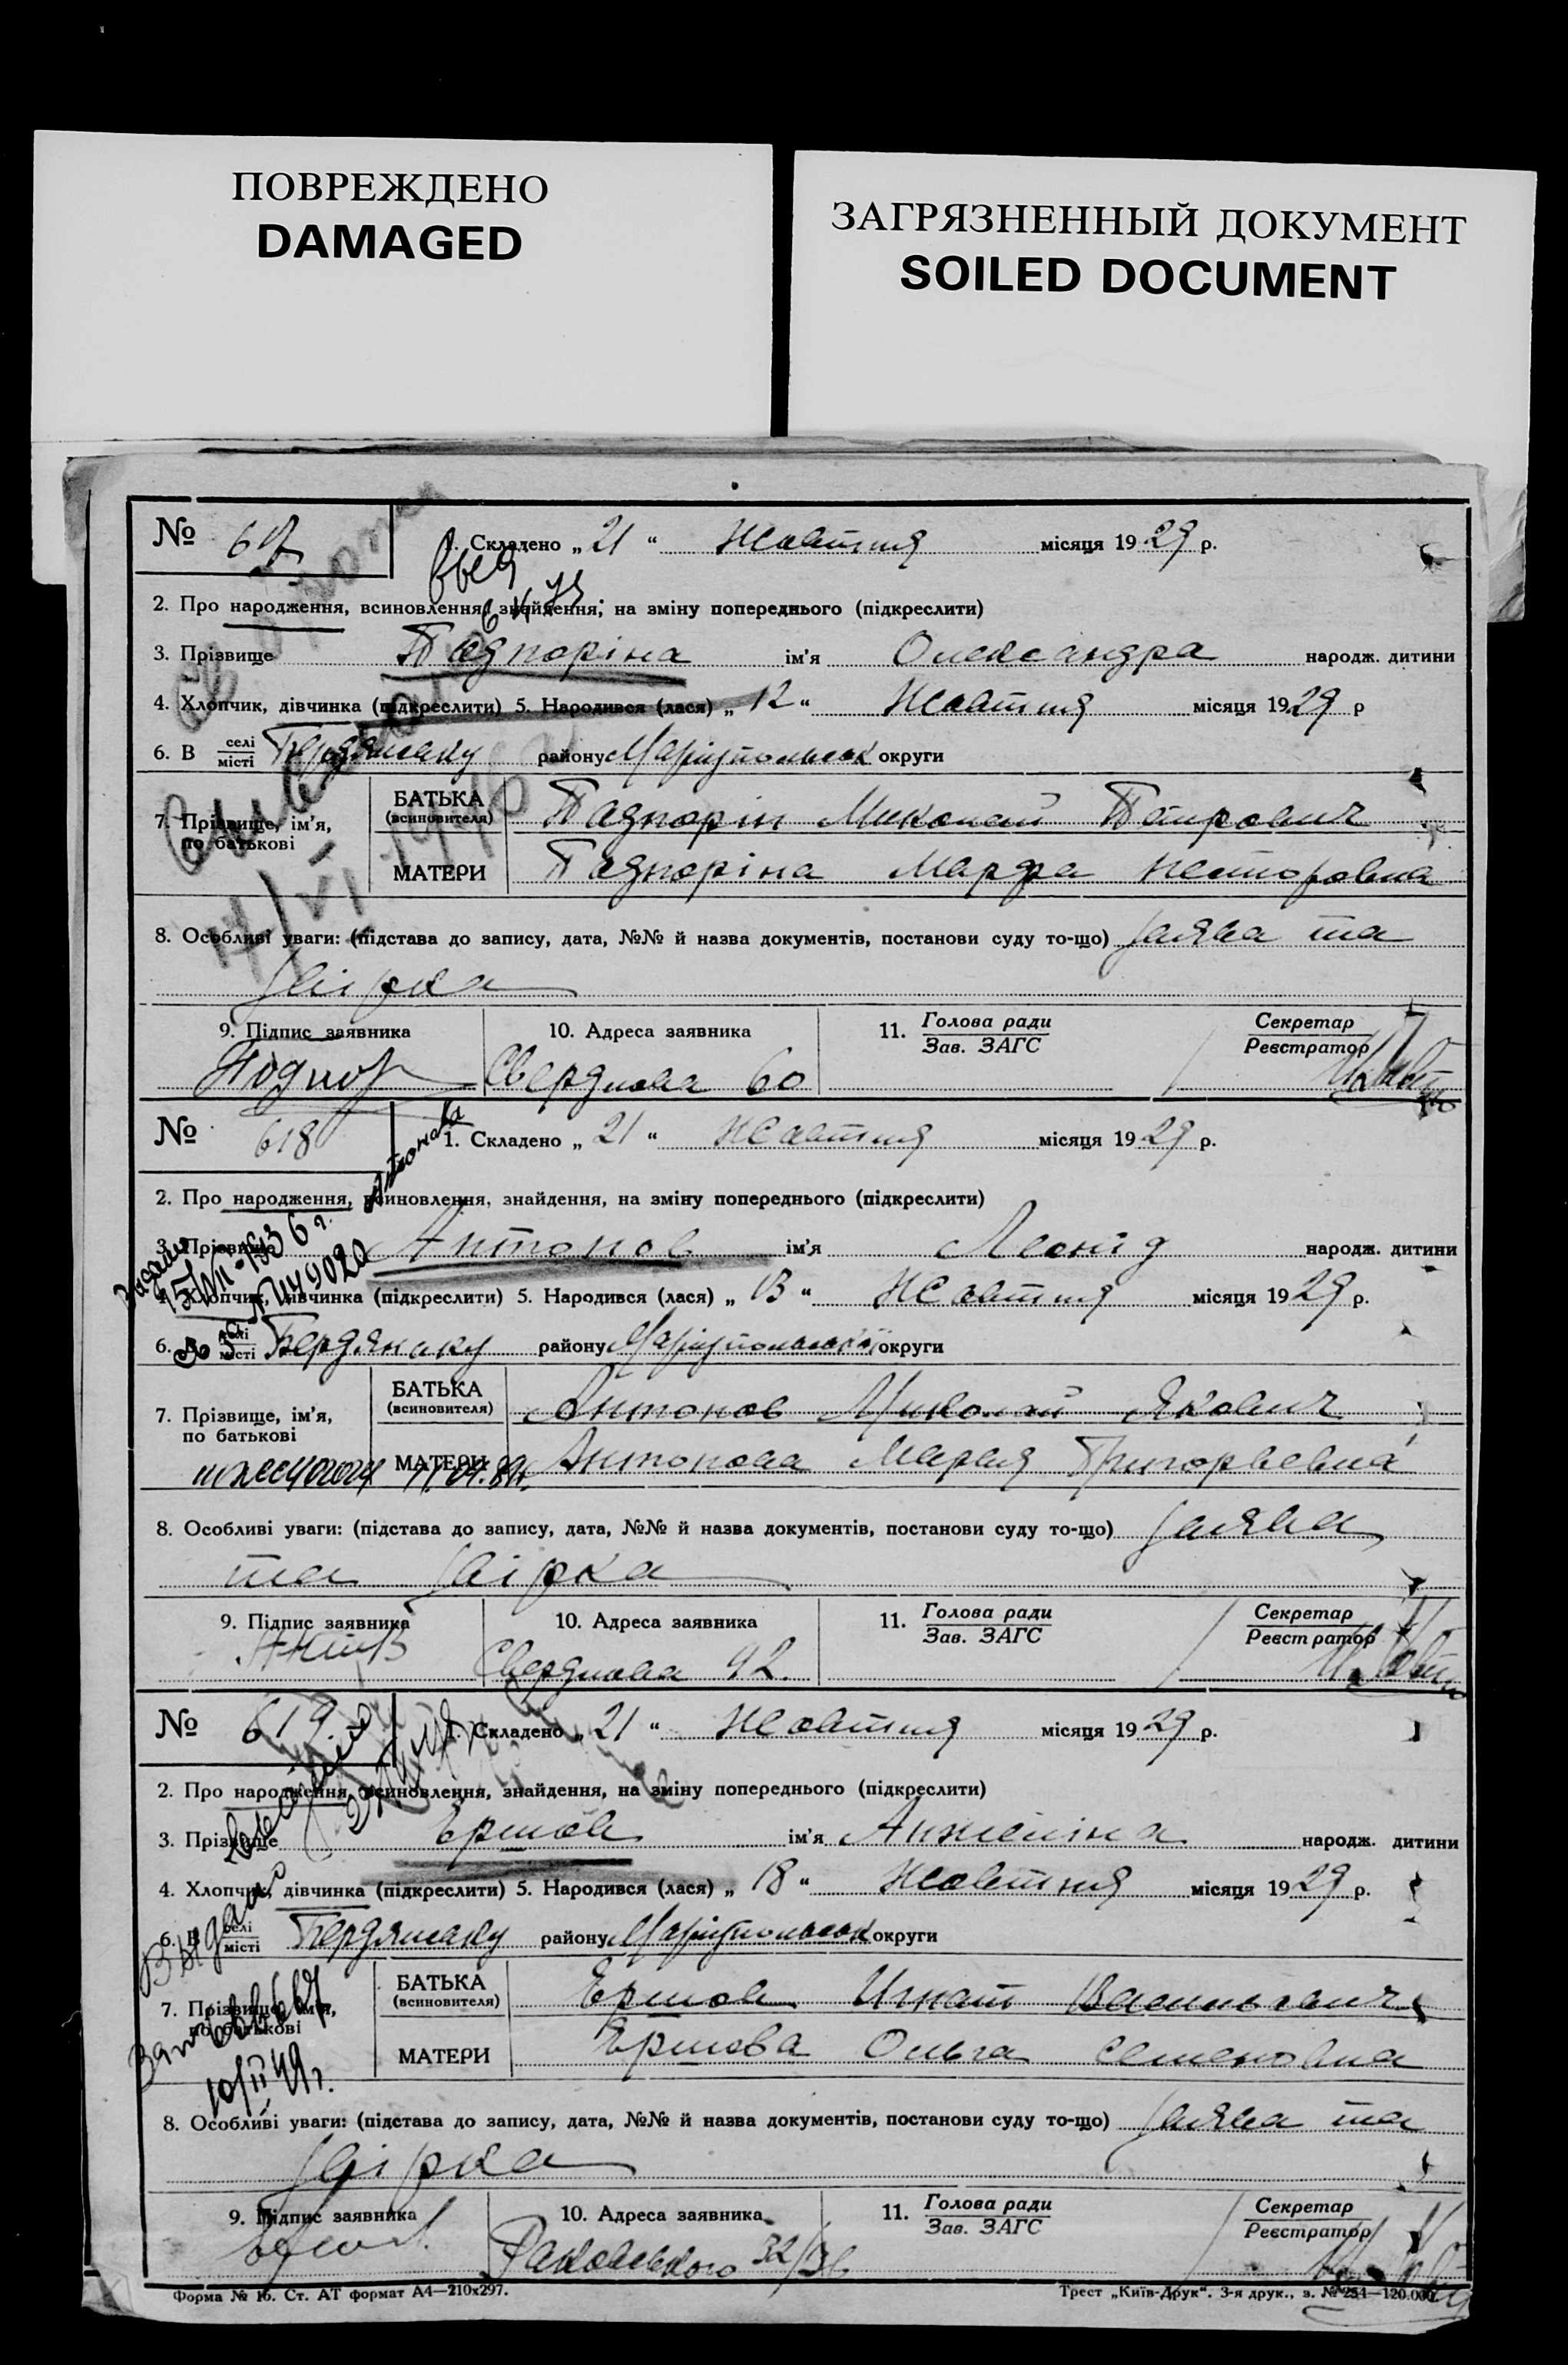 ПОВРЕЖДЕНО
DAMAGED
ЗАГРЯЗНЕННЫЙ ДОКУМЕНТ
SOILED DOCUMENT
№ 617
1. Складено „ 21 “ Жовтня місяця 1929 р.
2. Про народження, всиновлення, знайдення, на зміну попереднього (підкреслити)
3. Прізвище Падпоріна ім'я Олександра народж. дитини
4. Хлопчик, дівчинка (підкреслити) 5. Народився (лася) „ 12 “ Жовтня місяця 1929 р
6. В селі місті Бердянську району Маріупольськ округи
7. Прізвище, ім'я, по батькові
БАТЬКА (всиновителя) Падпорін Миколай Петрович
МАТЕРИ Падпоріна Марфа Несторовна
8. Особливі уваги: (підстава до запису, дата, №№ й назва документів, постанови суду то-що) заява та
звірка
9. Підпис заявника 10. Адреса заявника 11. Голова ради Зав. ЗАГС Секретар Реєстратор
Поднор Свердлова 60
№ 618
1. Складено „ 21 “ Жовтня місяця 1929 р.
2. Про народження, всиновлення, знайдення, на зміну попереднього (підкреслити)
3. Прізвище Антонов ім'я Леонід народж. дитини
4. Хлопчик, дівчинка (підкреслити) 5. Народився (лася) „ 13 “ Жовтня місяця 1929 р.
6. В селі місті Бердянську району Маріупольської округи
7. Прізвище, ім'я, по батькові
БАТЬКА (всиновителя) Антонов Миколай Якович
МАТЕРИ Антонова Мария Григорьевна
8. Особливі уваги: (підстава до запису, дата, №№ й назва документів, постанови суду то-що) заява
та звірка
9. Підпис заявника 10. Адреса заявника 11. Голова ради Зав. ЗАГС Секретар Реєстратор
Свердлова 92.
№ 619.
1. Складено „ 21 “ Жовтня місяця 1929 р.
2. Про народження, всиновлення, знайдення, на зміну попереднього (підкреслити)
3. Прізвище Ершов ім'я Анжеліна народж. дитини
4. Хлопчик, дівчинка (підкреслити) 5. Народився (лася) „ 18 “ Жовтня місяця 1929 р.
6. В селі місті Бердянську району Маріупольськ округи
7. Прізвище, ім'я, по батькові
БАТЬКА (всиновителя) Ершов Игнат Васильевич
МАТЕРИ Ершова Ольга Семеновна
10/II 49 г.
8. Особливі уваги: (підстава до запису, дата, №№ й назва документів, постанови суду то-що) заява та
звірка
9. Підпис заявника 10. Адреса заявника 11. Голова ради Зав. ЗАГС Секретар Реєстратор
Раковського 32/36
Форма № 1б. Ст. АТ формат А4—210х297.
Трест „Київ-Друк“. 3-я друк., з. № 251—120.000